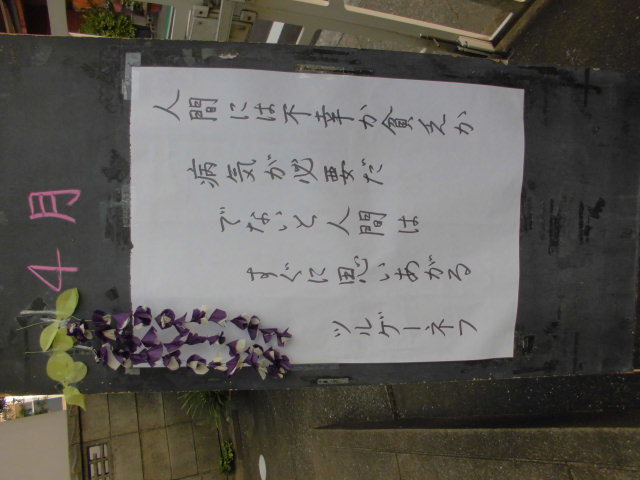 4月
人間には不幸か貧乏か
病気が必要だ
でないと人間は
すぐに思いあがる
ツルゲーネフ